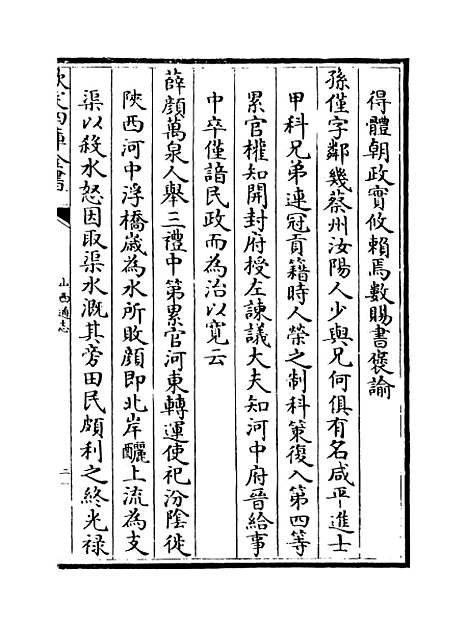 得體朝政實攸賴焉數賜書褒諭
孫僅字鄰幾蔡州汝陽人少與兄何俱有名咸平進士
甲科兄弟連冠貢籍時人榮之制科策復入第四等
累官權知開封府授左諫議大夫知河中府晉給事
中卒僅諳民政而為治以寛云
薛顔萬泉人舉三禮中第累官河東轉運使祀汾隂徙
陜西河中浮橋嵗為水所敗顔即北岸釃上流為支
渠以殺水怒因取渠水溉其旁田民頗利之終光禄
欽定四庫全書
山西通志